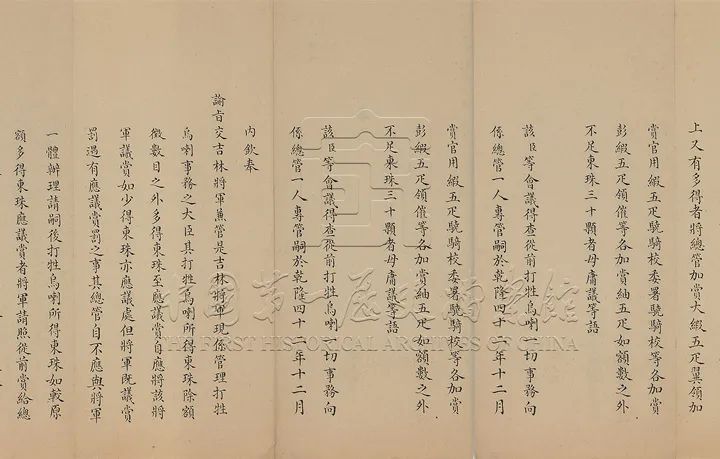 上又有多得者將總管加賞大緞五疋翼領加
賞官用緞五疋驍騎校委署驍騎校等各加賞
彭緞五疋領催等各加賞紬五疋如額數之外
不足東珠三十顆者毋庸議等語
該臣等會議得查從前打牲烏喇一切事務向
係總管一人專管嗣於乾隆四十二年十二月
賞官用緞五疋驍騎校委署驍騎校等各加賞
彭緞五疋領催等各加賞紬五疋如額數之外
不足東珠三十顆者毋庸議等語
該臣等會議得查從前打牲烏喇一切事務向
係總管一人專管嗣於乾隆四十二年十二月
內欽奉
諭旨交吉林將軍兼管是吉林將軍現係管理打牲
烏喇事務之大臣其打牲烏喇所得東珠除額
徵數目之外多得東珠至應議賞自應將該將
軍議賞如少得東珠亦應議處但將軍既議賞
罰遇有應議賞罰之事其總管自不應與將軍
一體辦理請嗣後打牲烏喇所得東珠如較原
額多得東珠應議賞者將軍請照從前賞給總
中国第一历史档案馆
THE FIRST HISTORICAL ARCHIVES OF CHINA